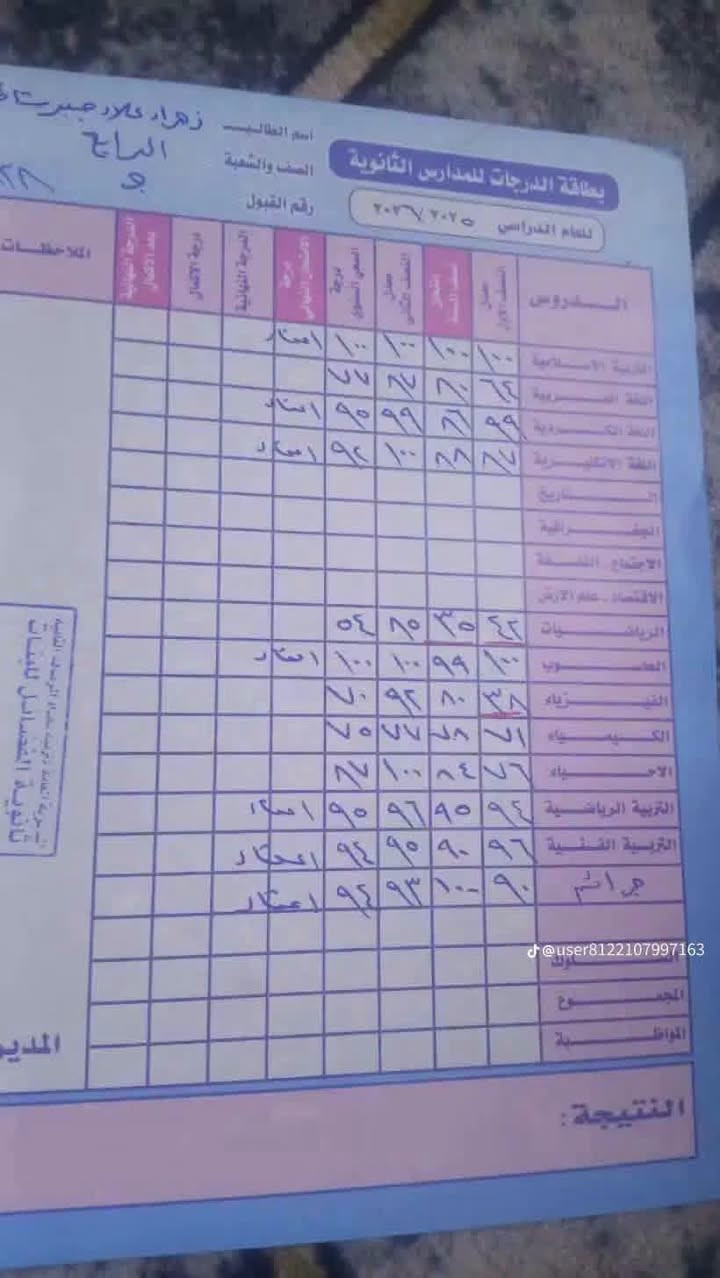 اسم الطالب زهراء علاء جبر
الصف والشعبة الرابع
رقم القبول
بطاقة الدرجات للمدارس الثانوية
للعام الدراسي ٢٠٢٥ / ٢٠٢٦
الدروس معدل النصف الاول امتحان نصف السنة معدل النصف الثاني درجة السعي السنوي درجة الامتحان النهائي الدرجة النهائية درجة الاكمال الدرجة النهائية بعد الاكمال الملاحظات
التربية الاسلامية ١٠٠ ١٠٠ ١٠٠ ١٠٠
اللغة العربية ٦٤ ٨٠ ٨٧ ٧٧
اللغة الكردية ٩٩ ٨٦ ٩٩ ٩٥
اللغة الانكليزية ٨٧ ٨٨ ١٠٠ ٩٢
التاريخ
الجغرافية
الاجتماع . الفلسفة
الاقتصاد . علم الارض
الرياضيات ٤٢ ٣٥ ٨٥ ٥٤
الحاسوب ١٠٠ ٩٩ ١٠٠ ١٠٠
الفيزياء ٣٨ ٨٠ ٩٢ ٧٠
الكيمياء ٧١ ٧٨ ٧٧ ٧٥
الاحياء ٧٦ ٨٤ ١٠٠ ٨٧
التربية الرياضية ٩٤ ٩٥ ٩٦ ٩٥
التربية الفنية ٩٦ ٩٠ ٩٥ ٩٤
جرائم ٩٠ ١٠٠ ٩٣ ٩٤
السلوك
المجموع
المواظبة
@user8122107997163
ثانوية للبنات
المدير
النتيجة :